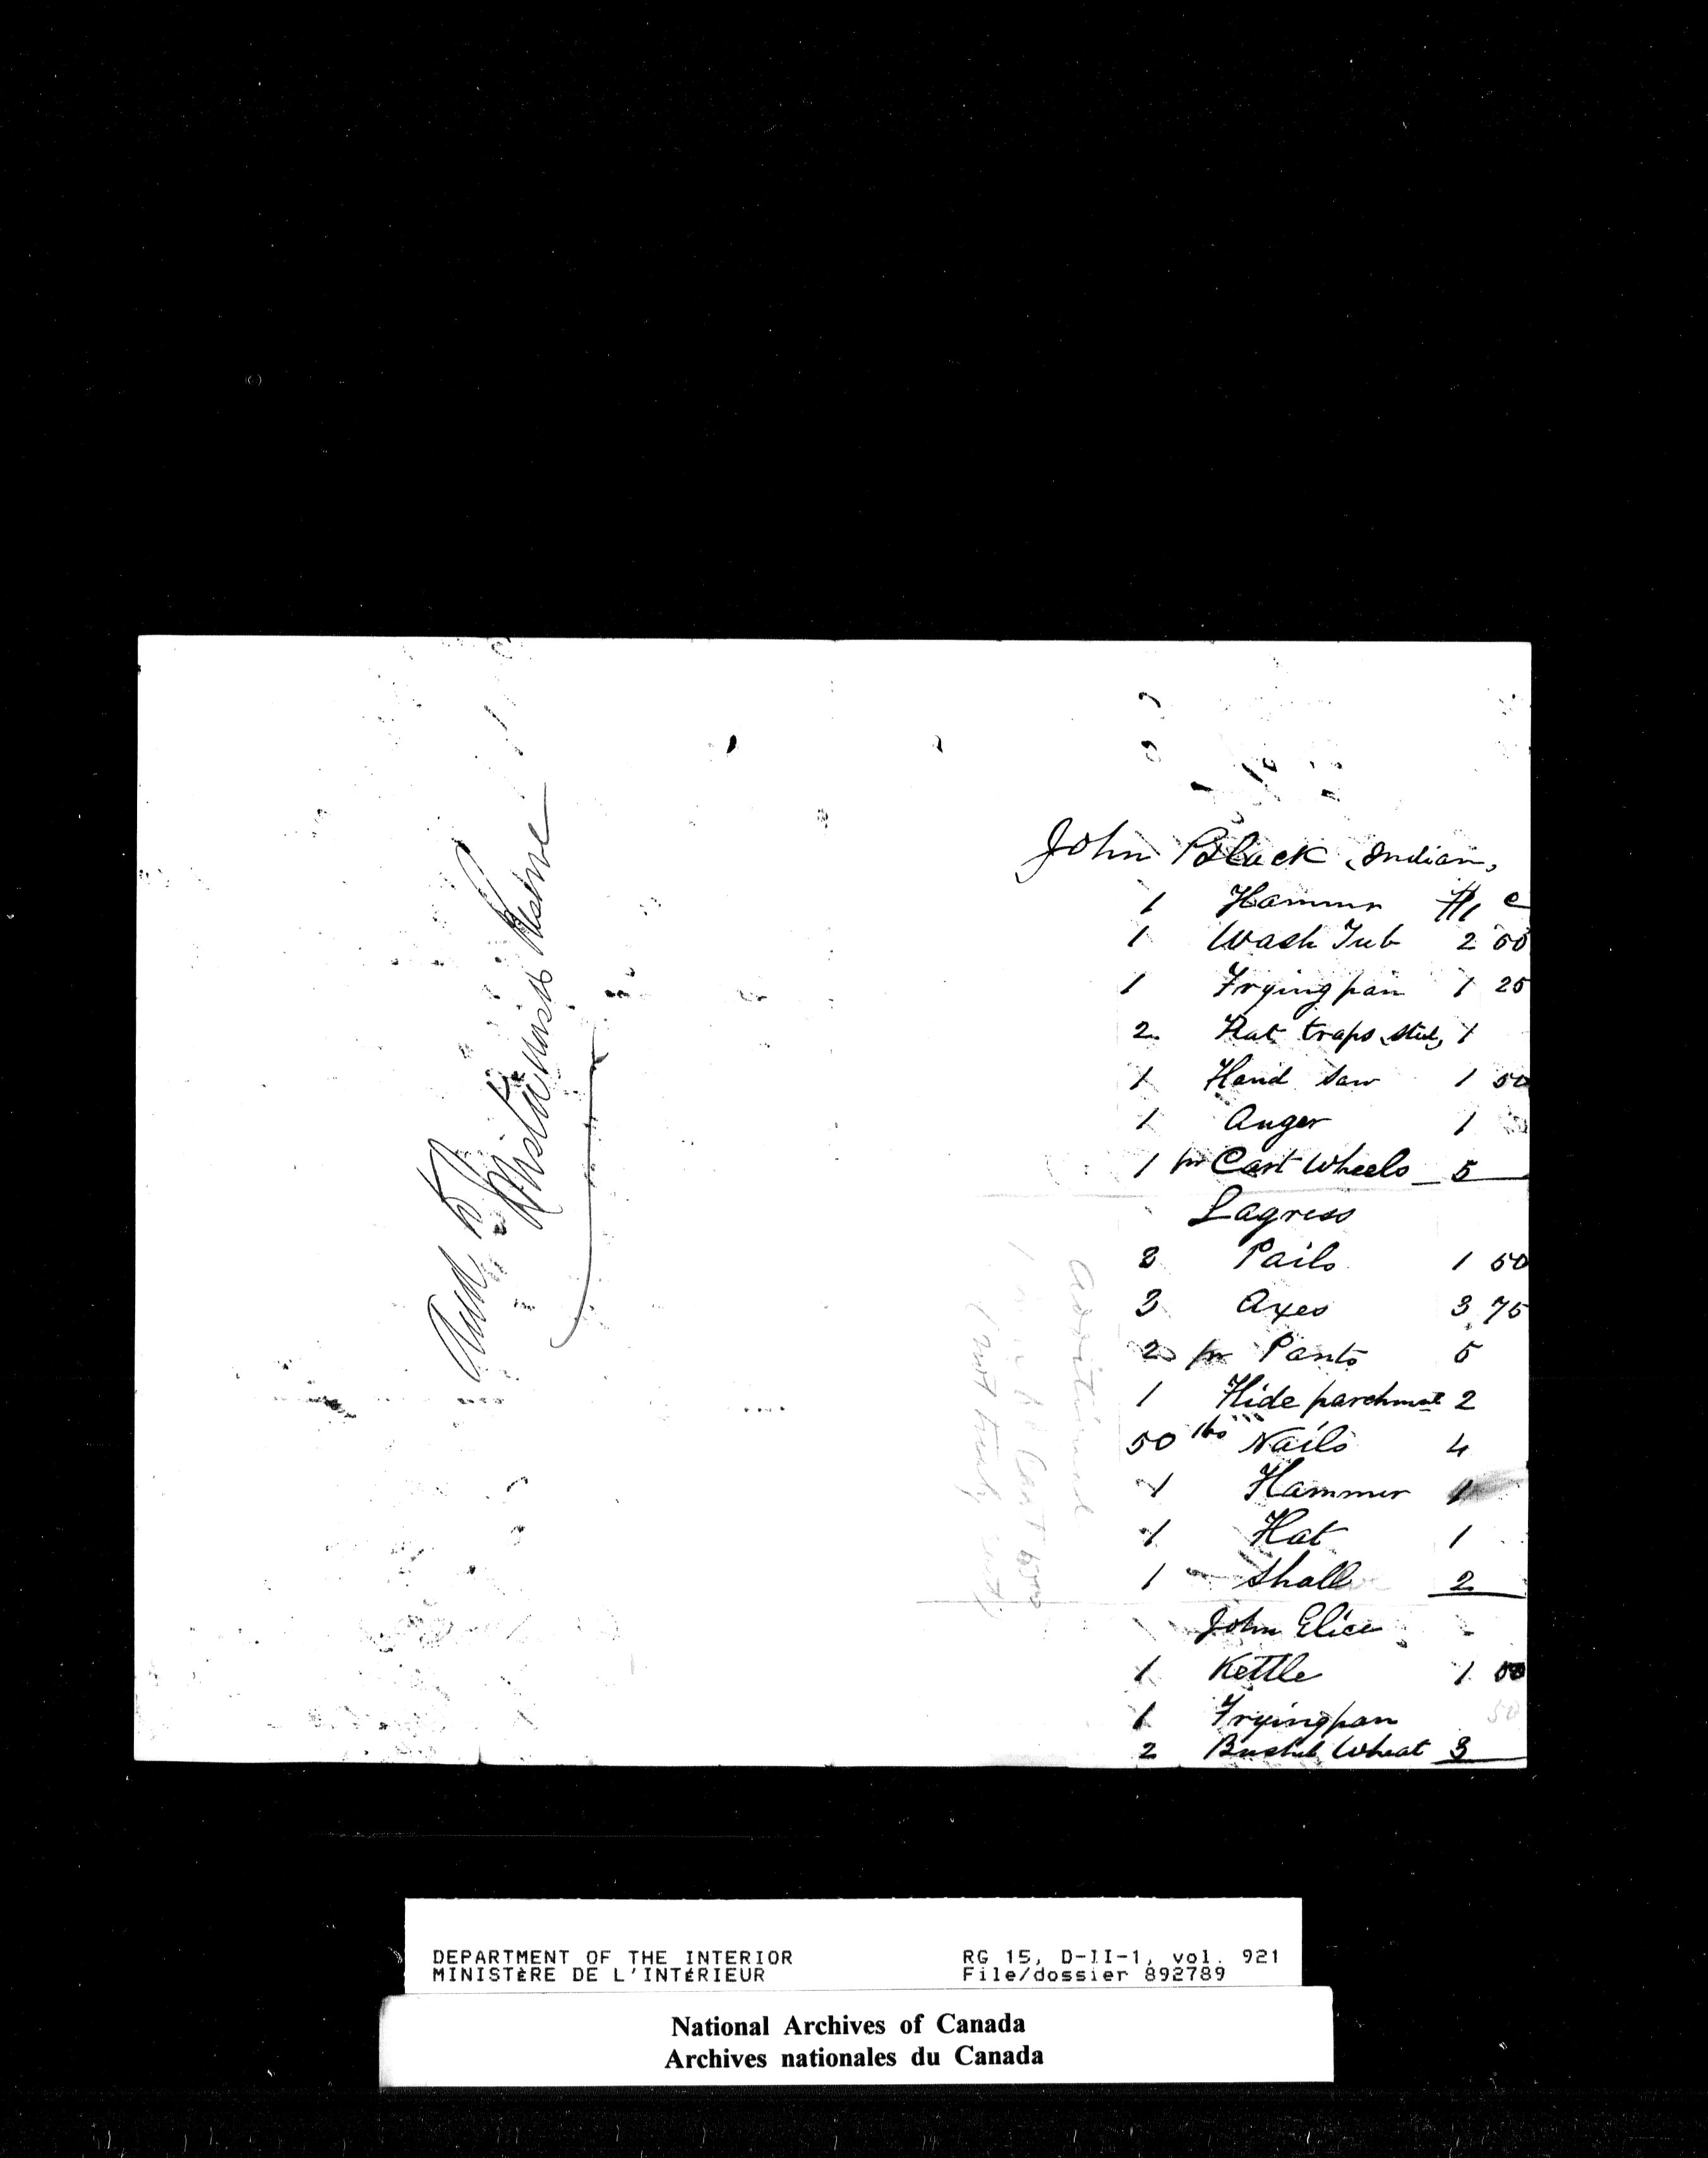 Reserve
John Black, Indian,
1 Hammer $1 c
1 Wash Tub 2 00
1 Frying pan 1 25
2 Rat traps, steel, 1
1 Hand Saw 1 50
1 Auger 1
1 pr Cart Wheels 5
Lagress
3 Pails 1 50
3 Axes 3 75
2 pr Pants 5
1 Hide parchmt 2
50 lbs Nails 4
1 Hammer 1
1 Hat 1
1 Shall 2
John Elice
1 Kettle 1 00
1 Frying pan 50
2 Bushel Wheat 3
DEPARTMENT OF THE INTERIOR RG 15, D-II-1, vol. 921
MINISTÈRE DE L'INTÉRIEUR File/dossier 892789
National Archives of Canada
Archives nationales du Canada